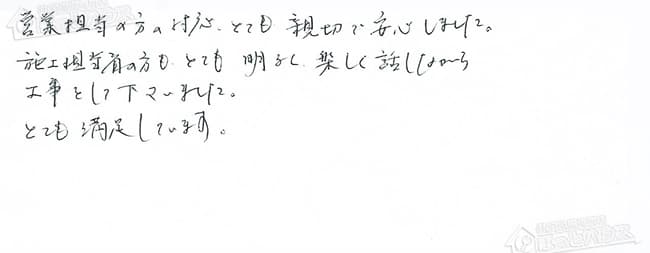 営業担当の方の対応、とても親切で安心しました。
施工担当者の方も、とても明るく、楽しく話しながら
工事をして下さいました。
とても満足しています。